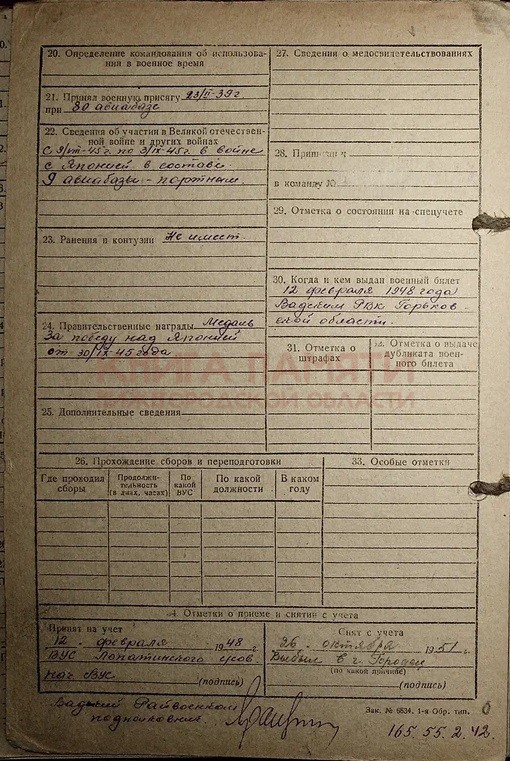 20. Определение командования об использова-
ния в военное время
21. Принял военную присягу 23/II-39г
при 30 авиабазе
22. Сведения об участии в Великой отечествен-
ной войне и других войнах
с 9/VIII-45г. по 3/IX-45г. в войне
с Японией в составе
9 авиабазы - портным.
23. Ранения и контузии Не имеет
24. Правительственные награды Медаль
За победу над Японией
от 30/IX-45 года
25. Дополнительные сведения
27. Сведения о медосвидетельствованиях
28. Приписан
в команду №
29. Отметка о состоянии на спецучете
30. Когда и кем выдан военный билет
12 февраля 1948 года
Вадским РВК Горьков
ской области.
31. Отметка о
штрафах
32. Отметка о выдаче
дубликата воен-
ного билета
КНИГА ПАМЯТИ
НИЖЕГОРОДСКОЙ ОБЛАСТИ
26. Прохождение сборов и переподготовки
Где проходил
сборы
Продолжи-
тельность
(в днях, часах)
По
какой
ВУС
По какой
должности
В каком
году
33. Особые отметки
34. Отметки о приеме и снятии с учета
Принят на учет
12. февраля 1948 г.
ВУС Лопатинского
нач ВУС
(подпись)
Снят с учета
26. октября 1951 г.
Выбыл в г.
(по какой причине)
(подпись)
Вадский Райвоенком
подполковник
Зак. № 6834. 1-я Обр. тип.
165. 55. 2. 42.